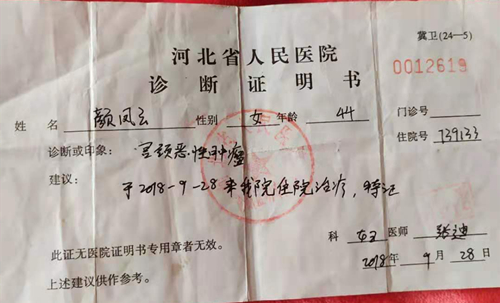 冀卫(24—5)
河北省人民医院
诊断证明书
0012619
姓名 颜凤云 性别 女 年龄 44 门诊号
住院号 739133
诊断或印象：宫颈恶性肿瘤
建议：于2018-9-28来我院住院治疗，特证
科 妇 医师 张迪
2018年9月28日
此证无医院证明书专用章者无效。
上述建议供作参考。